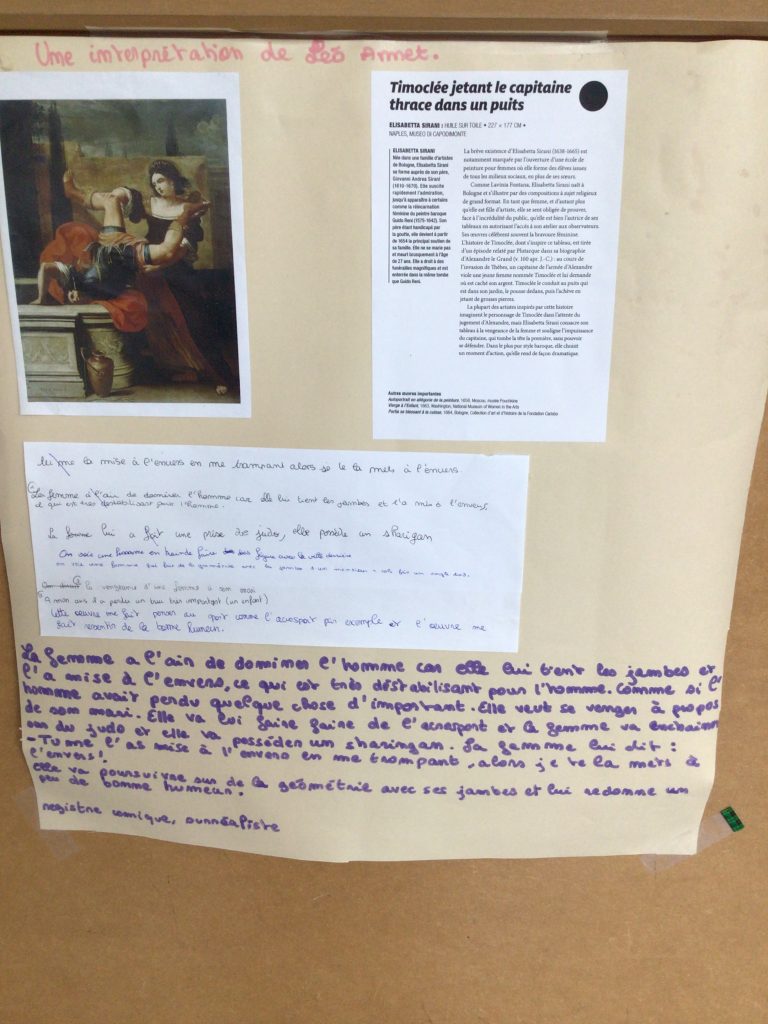 Une interprétation de Léo Armet.
Timoclée jetant le capitaine
thrace dans un puits
ELISABETTA SIRANI : HUILE SUR TOILE • 227 × 177 CM •
NAPLES, MUSEO DI CAPODIMONTE
ELISABETTA SIRANI
Née dans une famille d'artistes
de Bologne, Elisabetta Sirani
se forme auprès de son père,
Giovanni Andrea Sirani
(1610-1670). Elle suscite
rapidement l'admiration,
jusqu'à apparaître à certains
comme la réincarnation
féminine du peintre baroque
Guido Reni (1575-1642). Son
père étant handicapé par
la goutte, elle devient à partir
de 1654 le principal soutien de
sa famille. Elle ne se marie pas
et meurt brusquement à l'âge
de 27 ans. Elle a droit à des
funérailles magnifiques et est
enterrée dans la même tombe
que Guido Reni.
La brève existence d'Elisabetta Sirani (1638-1665) est
notamment marquée par l'ouverture d'une école de
peinture pour femmes où elle forme des élèves issues
de tous les milieux sociaux, en plus de ses sœurs.
Comme Lavinia Fontana, Elisabetta Sirani naît à
Bologne et s'illustre par des compositions à sujet religieux
de grand format. En tant que femme, et d'autant plus
qu'elle est fille d'artiste, elle se sent obligée de prouver,
face à l'incrédulité du public, qu'elle est bien l'autrice de ses
tableaux en autorisant l'accès à son atelier aux observateurs.
Ses œuvres célèbrent souvent la bravoure féminine.
L'histoire de Timoclée, dont s'inspire ce tableau, est tirée
d'un épisode relaté par Plutarque dans sa biographie
d'Alexandre le Grand (v. 100 apr. J.-C.) : au cours de
l'invasion de Thèbes, un capitaine de l'armée d'Alexandre
viole une jeune femme nommée Timoclée et lui demande
où est caché son argent. Timoclée le conduit au puits qui
est dans son jardin, le pousse dedans, puis l'achève en
jetant de grosses pierres.
La plupart des artistes inspirés par cette histoire
imaginent le personnage de Timoclée dans l'attente du
jugement d'Alexandre, mais Elisabetta Sirani consacre son
tableau à la vengeance de la femme et souligne l'impuissance
du capitaine, qui tombe la tête la première, sans pouvoir
se défendre. Dans le pur style baroque, elle choisit
un moment d'action, qu'elle rend de façon dramatique.
Autres œuvres importantes
Autoportrait en allégorie de la peinture, 1658, Moscou, musée Pouchkine
Vierge à l'Enfant, 1663, Washington, National Museum of Women in the Arts
Portia se blessant à la cuisse, 1664, Bologne, Collection d'art et d'histoire de la Fondation Carisbo
me la mise à l'envers en me trompant alors je te la mets à l'envers
La femme à l'air de dominer l'homme car elle lui tient les jambes et l'a mis à l'envers,
ce qui est très déstabilisant pour l'homme.
La femme lui a fait une prise de judo, elle possède un sharigan
On voit une femme en train de faire la avec la ville derrière
on voit une femme qui fait de la géométrie avec les jambes d'un monsieur - cela fait un angle
la vengeance d'une femme à son mari
A mon avis il a perdu un truc très important (un enfant)
Cette œuvre me fait penser au sport comme l'acrosport par exemple et l'œuvre me
fait ressentir de la bonne humeur.
La femme a l'air de dominer l'homme car elle lui tient les jambes et
l'a mise à l'envers, ce qui est très déstabilisant pour l'homme. Comme si l'
homme avait perdu quelque chose d'important. Elle veut se venger à propos
de son mari. Elle va lui faire faire de l'acrosport et la femme va enchainer
sur du judo et elle va posséder un sharingan. La femme lui dit :
- Tu me l'as mise à l'envers en me trompant, alors je te la mets à
l'envers!
elle va poursuivre sur de la géométrie avec ses jambes et lui redonne un
peu de bonne humeur.
registre comique, surréaliste